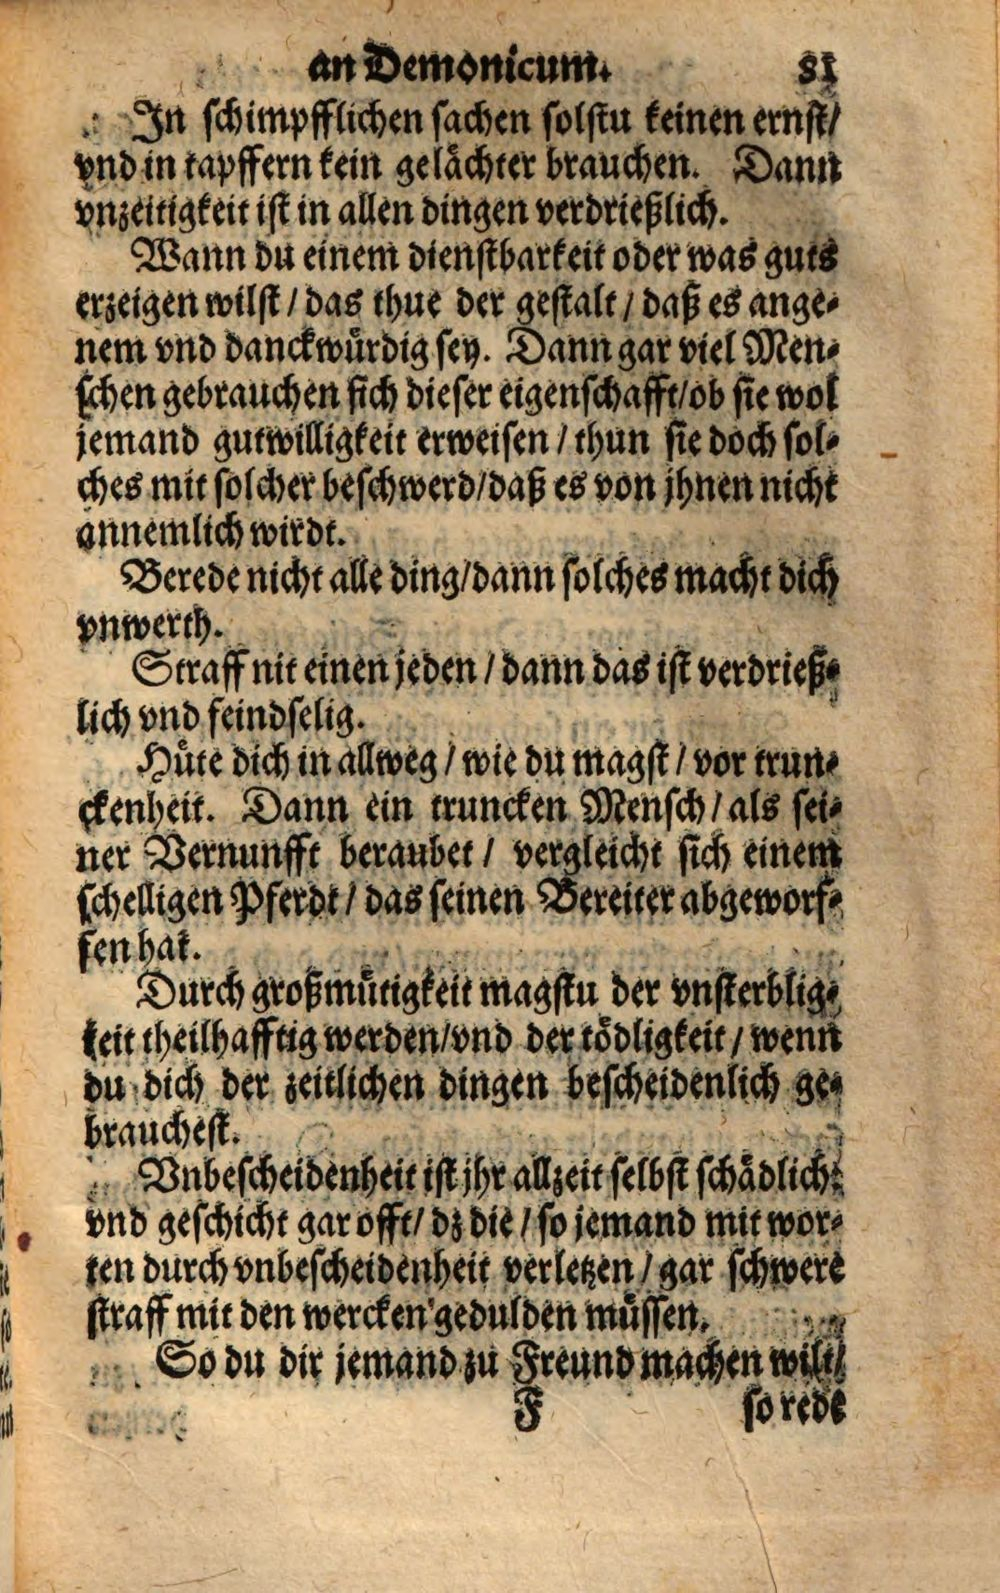 an Demonicum. 81
In schimpfflichen sachen solstu keinen ernst/
vnd in tapffern kein gelächter brauchen. Dann
vnzeitigkeit ist in allen dingen verdrießlich.
Wann du einem dienstbarkeit oder was guts
erzeigen wilst / das thue der gestalt / daß es ange-
nem vnd danckwürdig sey. Dann gar viel Men-
schen gebrauchen sich dieser eigenschafft/ob sie wol
jemand gutwilligkeit erweisen / thun sie doch sol-
ches mit solcher beschwerd/daß es von jhnen nicht
annemlich wirdt.
Berede nicht alle ding/dann solches macht dich
vnwerth.
Straff nit einen jeden / dann das ist verdrieß-
lich vnd feindselig.
Hüte dich in allweg / wie du magst / vor trun-
ckenheit. Dann ein truncken Mensch / als sei-
ner Vernunfft beraubet / vergleicht sich einem
schelligen Pferdt / das seinen Bereiter abgeworf-
fen hat.
Durch großmütigkeit magstu der vnsterblig-
keit theilhafftig werden/vnd der tödligkeit / wenn
du dich der zeitlichen dingen bescheidenlich ge-
brauchest.
Vnbescheidenheit ist jhr allzeit selbst schädlich:
vnd geschicht gar offt/ dz die / so jemand mit wor-
ten durch vnbescheidenheit verletzen / gar schwere
straff mit den wercken gedulden müssen.
So du dir jemand zu Freund machen wilt/
F so rede